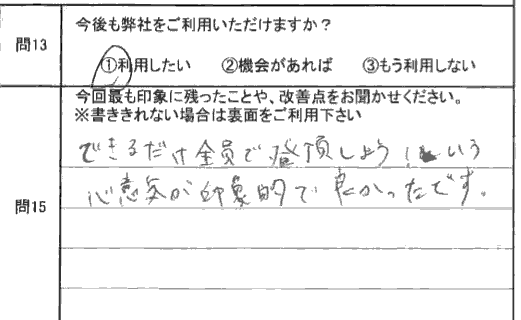 問13
今後も弊社をご利用いただけますか？
①利用したい ②機会があれば ③もう利用しない
問15
今回最も印象に残ったことや、改善点をお聞かせください。
※書ききれない場合は裏面をご利用下さい
できるだけ全員で登頂しよう！という
心意気が印象的で良かったです。